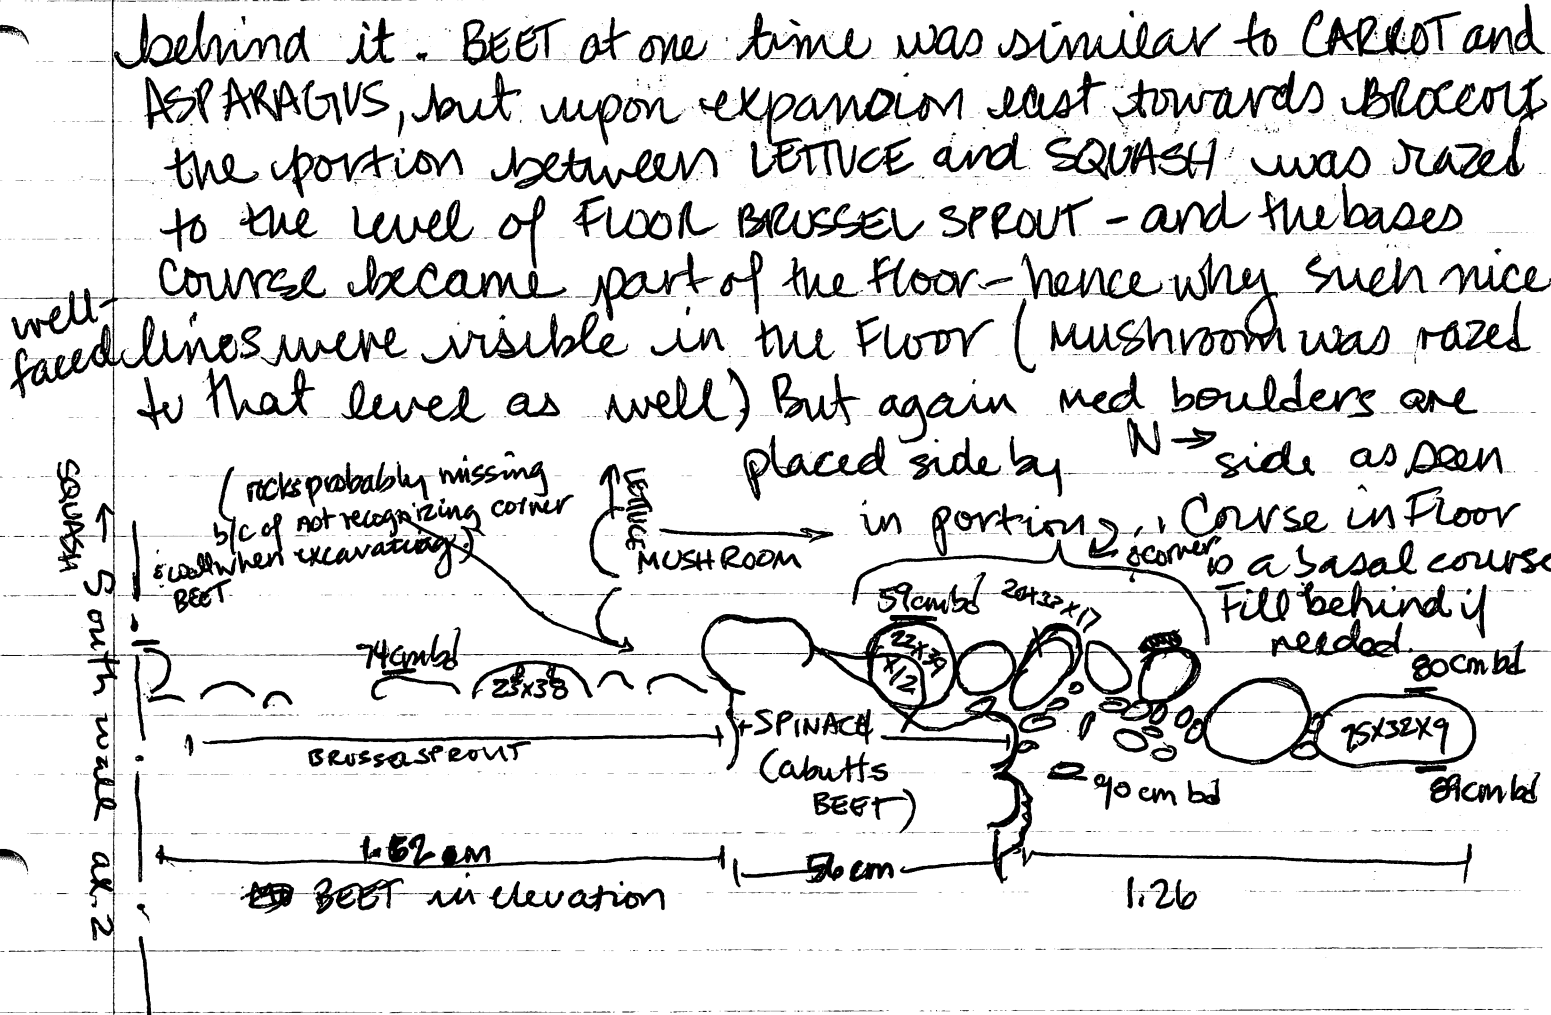 behind it. BEET at one time was similar to CARROT and
ASPARAGUS, but upon expansion east towards BROCCOLI
the portion between LETTUCE and SQUASH was razed
to the level of FLOOR BRUSSEL SPROUT - and the bases
Course became part of the Floor - hence why such nice
well-
faced lines were visible in the Floor (Mushroom was razed
to that level as well) But again med boulders are
placed side by side as seen
N →
in portion. Course in Floor
is a basal course
Fill behind if
needed.
SQUASH ←
South wall ak.2
(rocks probably missing
b/c of not recognizing corner
when excavating)
BEET
LETTUCE
MUSHROOM
corner
59cmbd
20x32x17
22x39
x12
74cmbd
23x38
80cmbd
25x32x9
89cmbd
90cm bd
BRUSSELSPROUT
SPINACH
(abutts
BEET)
1.52 m
56cm
1.26
BEET in elevation